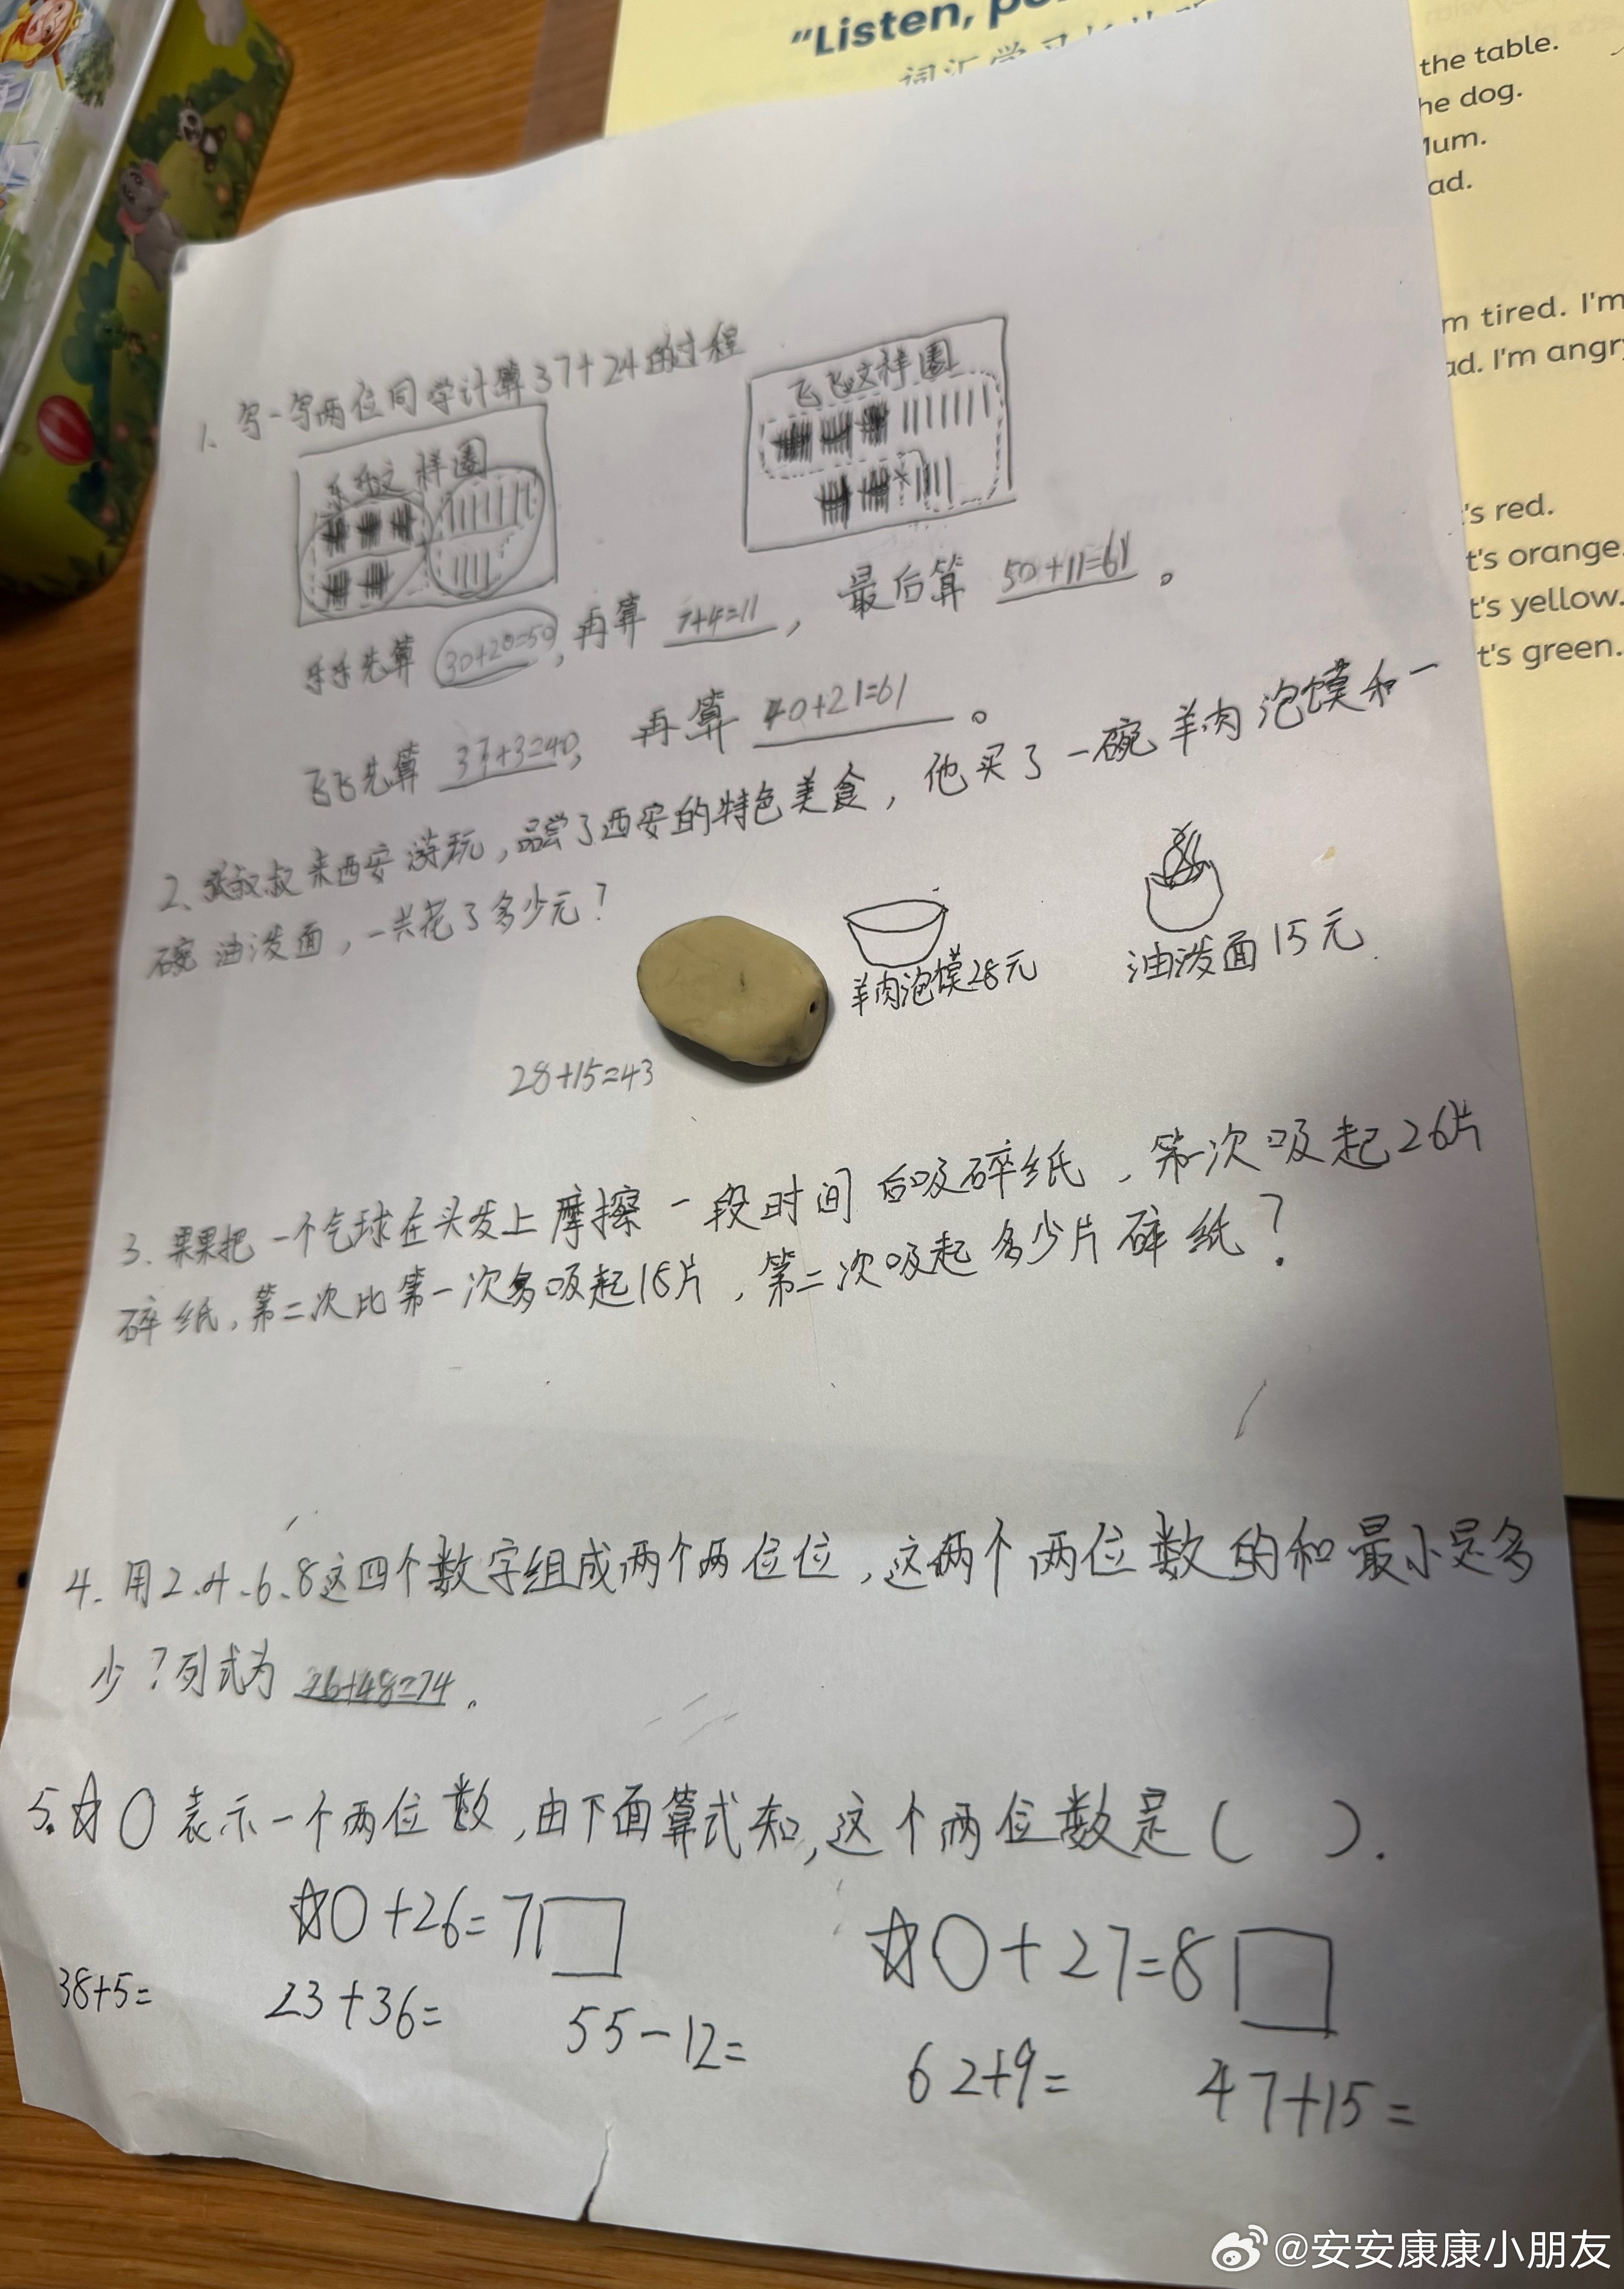 "Listen, po
词汇学习
the table.
he dog.
Mum.
ad.
m tired. I'm
ad. I'm angry
's red.
t's orange.
t's yellow.
t's green.
1、写一写两位同学计算37+24的过程
乐乐这样圈
飞飞这样圈
乐乐先算 30+20=50,再算 7+4=11, 最后算 50+11=61。
飞飞先算 37+3=40, 再算 40+21=61。
2、张叔叔来西安游玩,品尝了西安的特色美食,他买了一碗羊肉泡馍和一
碗油泼面,一共花了多少元?
羊肉泡馍28元
油泼面15元
28+15=43
3.果果把一个气球在头发上摩擦一段时间后吸碎纸,第一次吸起26片
碎纸,第二次比第一次多吸起15片,第二次吸起多少片碎纸?
4.用2、4、6、8这四个数字组成两个两位位,这两个两位数的和最小是多
少?列式为 26+48=74.
5.☆○表示一个两位数,由下面算式知,这个两位数是( ).
☆○+26=7□
☆○+27=8□
38+5=
23+36=
55-12=
62+9=
47+15=
@安安康康小朋友